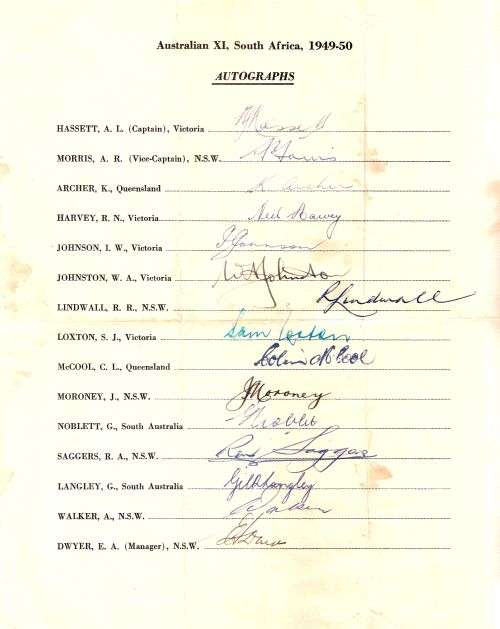 Australian XI, South Africa, 1949-50
AUTOGRAPHS
HASSETT, A. L. (Captain), Victoria Hassett
MORRIS, A. R. (Vice-Captain), N.S.W. Morris
ARCHER, K., Queensland K. Archer
HARVEY, R. N., Victoria Neil Harvey
JOHNSON, I. W., Victoria I Johnson
JOHNSTON, W. A., Victoria W A Johnston
LINDWALL, R. R., N.S.W. R Lindwall
LOXTON, S. J., Victoria Sam Loxton
McCOOL, C. L., Queensland Colin McCool
MORONEY, J., N.S.W. J Moroney
NOBLETT, G., South Australia G Noblet
SAGGERS, R. A., N.S.W. Ron Saggers
LANGLEY, G., South Australia Gil Langley
WALKER, A., N.S.W.
DWYER, E. A. (Manager), N.S.W.